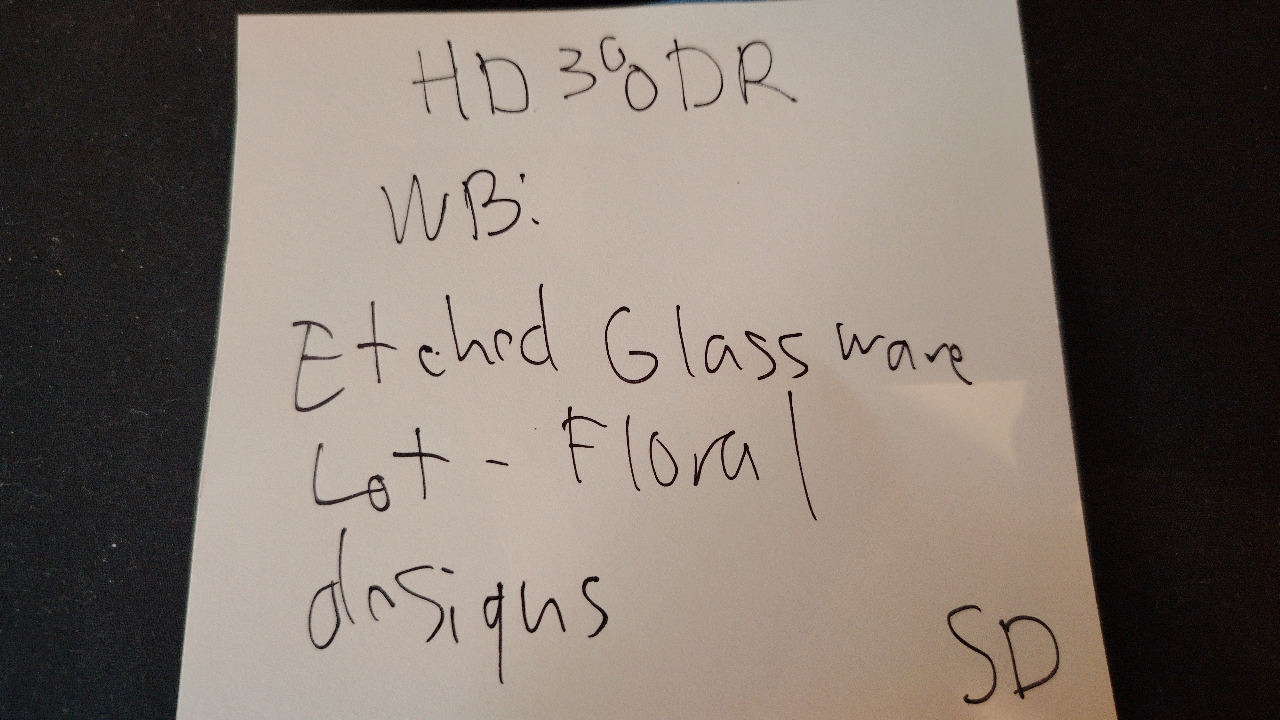 HD300DR
WB:
Etched Glassware
Lot - Floral
designs
SD